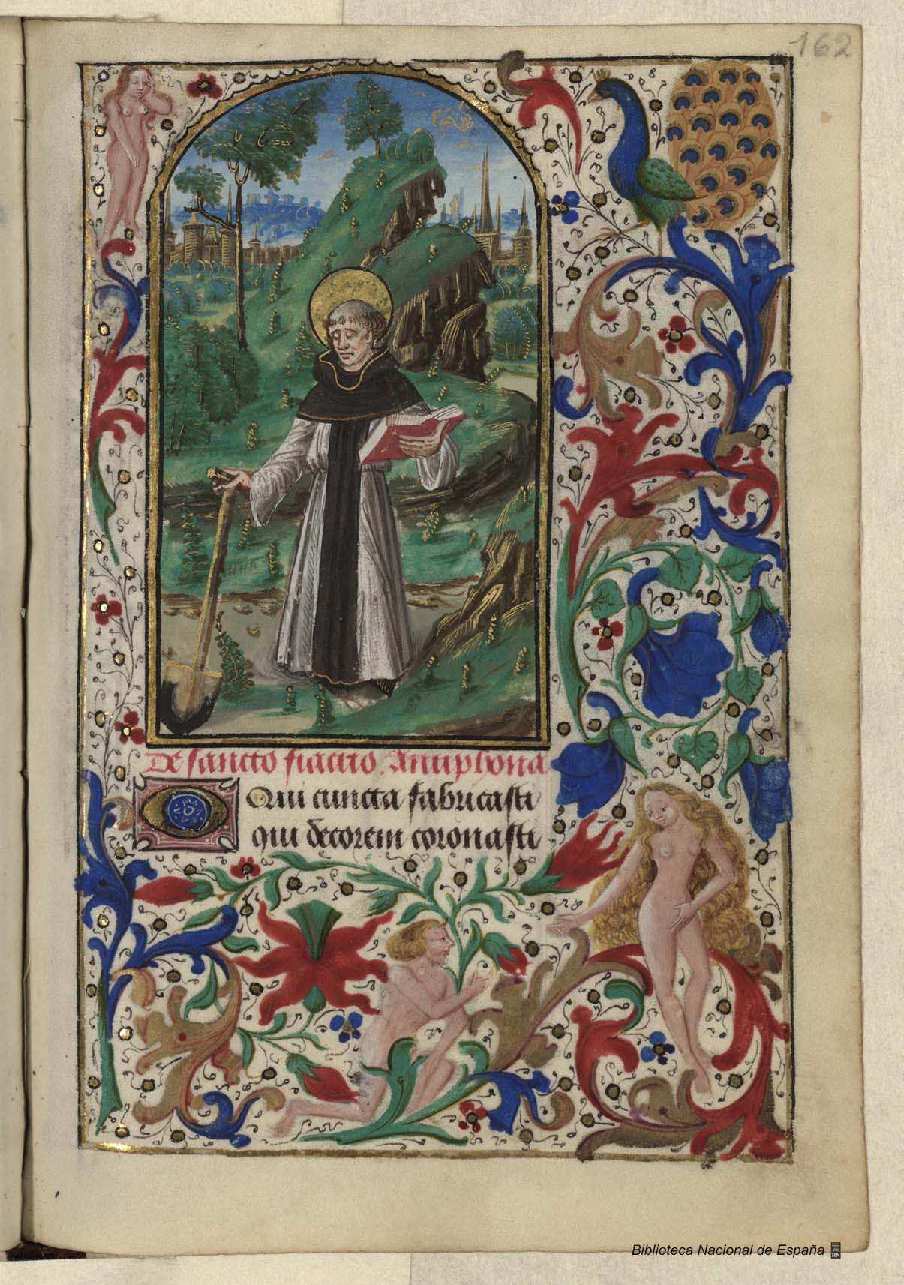 162
De sancto fiacrio. Antiphona
Qui cuncta fabricasti
qui decorem coronasti
Biblioteca Nacional de España